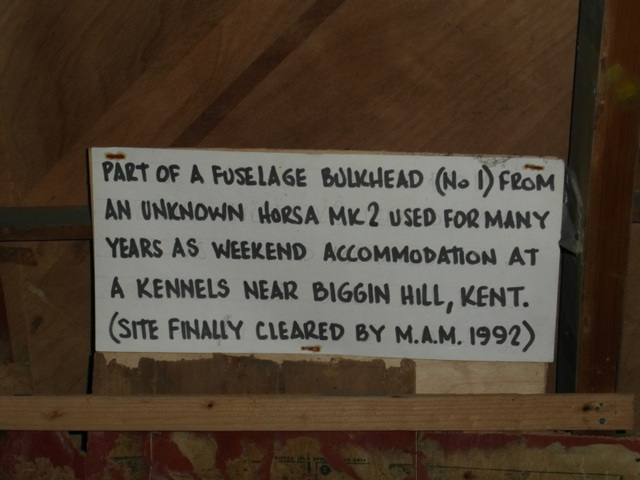 PART OF A FUSELAGE BULKHEAD (No 1) FROM
AN UNKNOWN HORSA MK 2 USED FOR MANY
YEARS AS WEEKEND ACCOMMODATION AT
A KENNELS NEAR BIGGIN HILL, KENT.
(SITE FINALLY CLEARED BY M.A.M. 1992)